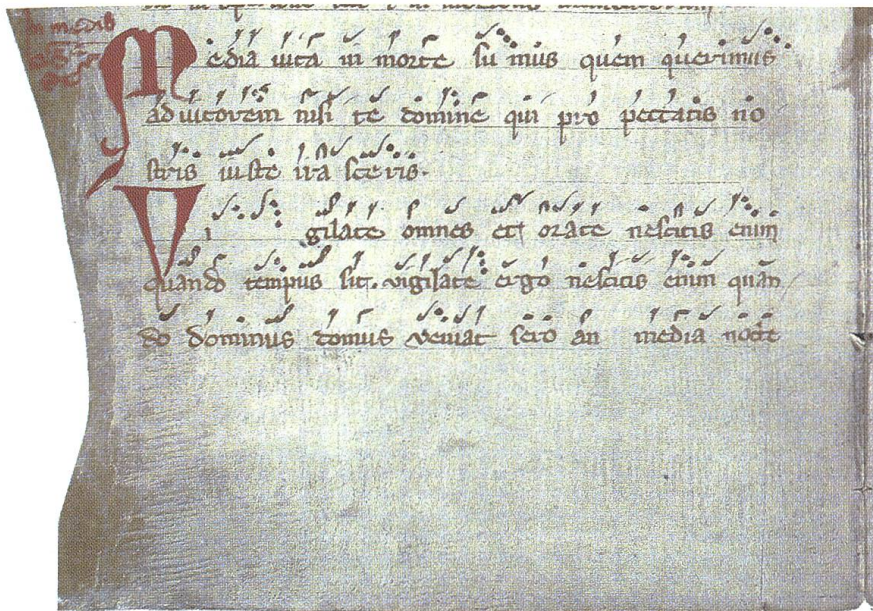 in medio
Media vita in morte sumus quem querimus
adiutorem nisi te domine qui pro peccatis no
stris iuste irasceris.
Vigilate omnes et orate nescitis enim
quando tempus sit. vigilate ergo nescitis enim quan
do dominus domus veniat sero an media nocte